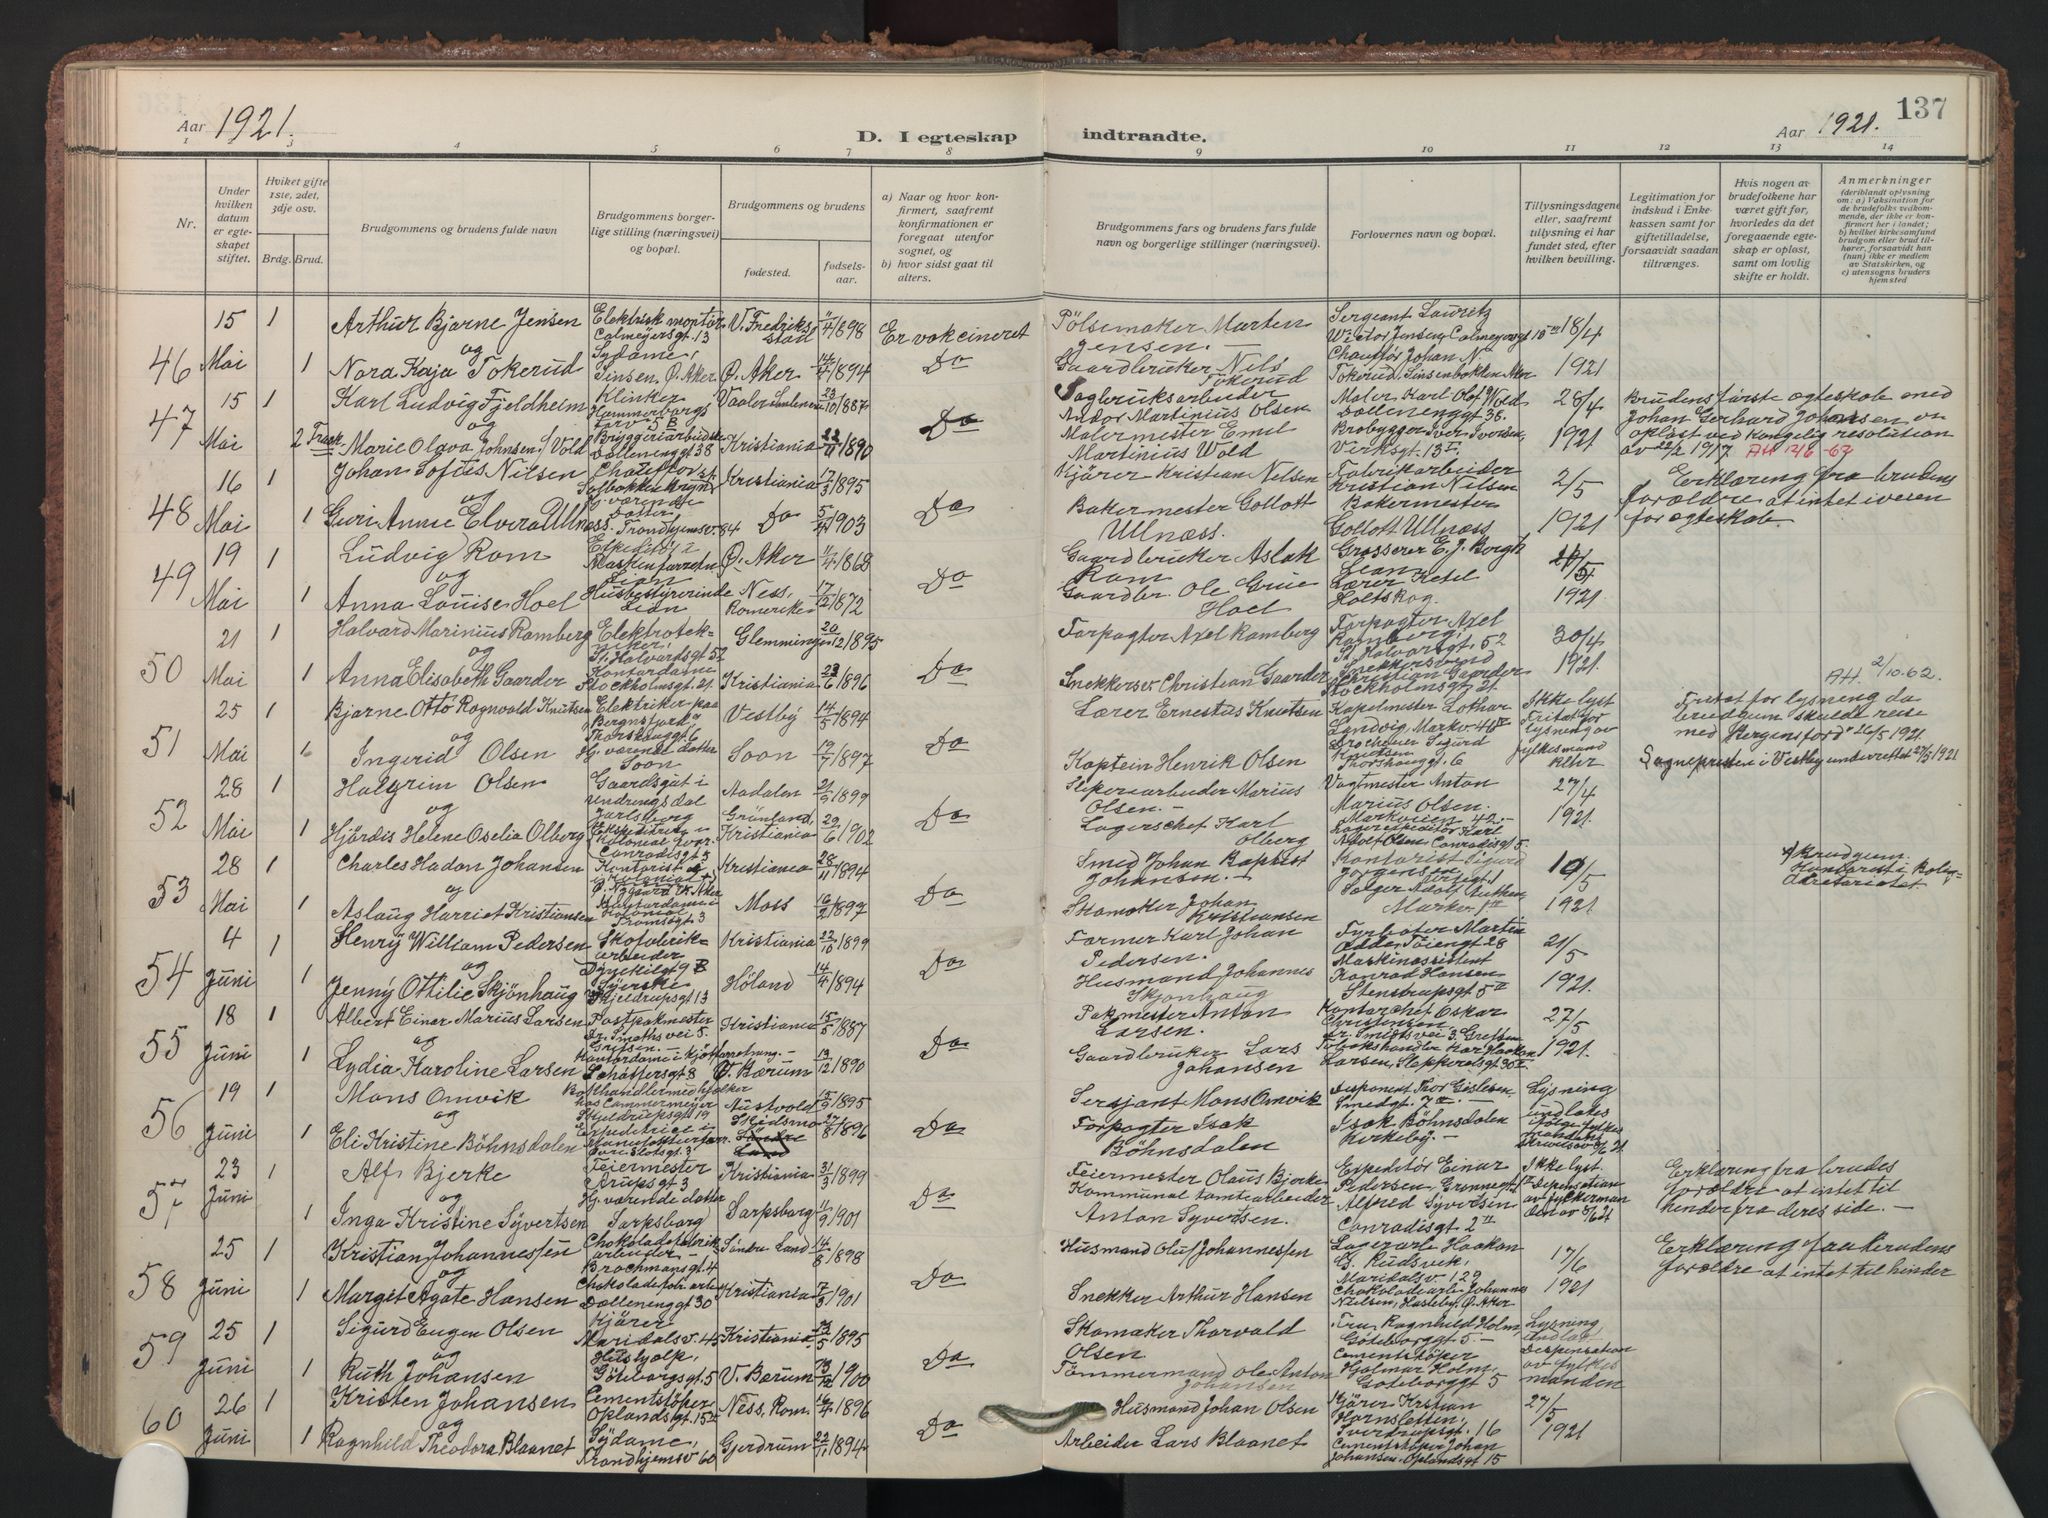 137
Aar 1921.
D. I egteskap indtraadte.
Aar 1921.
1 3 4 5 6 7 8 9 10 11 12 13 14
Nr.
Under hvilken datum er egteskapet stiftet.
Hvilket gifte 1ste, 2det, 3dje osv.
Brdg. Brud.
Brudgommens og brudens fulde navn
Brudgommens borgerlige stilling (næringsvei) og bopæl.
Brudgommens og brudens
fødested.
fødselsaar.
a) Naar og hvor konfirmert, saafremt konfirmationen er foregaat utenfor sognet, og
b) hvor sidst gaat til alters.
Brudgommens fars og brudens fars fulde navn og borgerlige stillinger (næringsvei).
Forlovernes navn og bopæl.
Tillysningsdagene eller, saafremt tillysning ei har fundet sted, efter hvilken bevilling.
Legitimation for indskud i Enkekassen samt for giftetilladelse, forsaavidt saadan tiltrænges.
Hvis nogen av brudefolkene har været gift før, hvorledes da det foregaaende egteskap er opløst, samt om lovlig skifte er holdt.
Anmerkninger
46
15 Mai 1 Arthur Bjarne Jensen Elektrisk montør Calmeyersgt. 13 V. Fredrikstad 1898 Er vakcineret Pölsemaker Marten Jensen. Sergeant Lauritz Victor Jensen, Calmeyersgt 18/4
og
1 Nora Kaja Tokerud Sydame, Sinsen, Ø. Aker Ø. Aker 14/7 1894 Do Gaardbruker Nils Tokerud Chauffør Johan N. Tokerud, Sinsenbakken Aker 1921
47
15 Mai 1 Karl Ludvig Fjeldheim Klinker Hammersborgs torv 5 B Vaaler Smlenene 23/10 1887 Do Sagbruksarbeider Andor Martinius Olsen Maler Karl Olof Wold Dællenenggt 38. 28/4
og
2 Frask. Marie Olava Johnsen f/ Vold Bryggeriarbeiderske Dællenenggt 38 Kristiania 22/11 1890 Malermester Emil Martinius Wold Brobygger Iver Iversen, Verksgt. 13 1921
Brudens første egteskab med Johan Gerhard Johansen er opløst ved kongelig resolution av 22/2 1917 AH 146-62
48
16 Mai 1 Johan Sofus Nilsen Chauffør Kristiania 17/3 1895 Do Kjörer Kristian Nilsen Fabrikarbeider Kristian Nilsen 2/5
og
1 Guri Annie Elvera Ulnæss. Hj. værende datter, Trondhjemsv. 84 Do 5/4 1903 Bakermester Gollott Ulnæss. Bakermester Gollott Ulnæss 1921
Erklæring fra brudens forældre at intet iveien for egteskab.
49
19 Mai 1 Ludvig Rom Expeditør i Maskinforretn Lian Ø. Aker 1868 Do Gaardbruker Aslak Rom Grosserer E. J. Borgh Lian
og
1 Anna Louise Hoel Husbestyrerinde Lian Ness, Romerike 17/12 1872 Gaardbr. Ole Grue Hoel Lærer Ketel Holtskog. 1921
50
21 Mai 1 Halvard Marinius Ramberg Elektrotekniker, St. Halvardsgt 52 Glemminge 20/12 1895 Do Forpagter Axel Ramberg Forpagter Axel Ramberg, St. Halvorsgt. 52 30/4
og
1 Anna Elisabeth Gaarder Kontordame Stockholmsgt. 21. Kristiania 23/6 1896 Snekkersv Christian Gaarder Snekkersvend Christian Gaarder Stockholmsgt 21. 1921.
AH. 2/10.62.
51
25 Mai 1 Bjarne Otto Ragnvald Knutsen Elektriker paa Bergensfjord, Thorshauggt 6 Vestby 14/5 1894 Do Lærer Ernestus Knutsen Kapelmester Lothar Lyndvig, Markv 46 Ikke lyst Fritat for lysning av fylkesmand
og
1 Ingerid Olsen Hj. værende datter Soon Soon 19/7 1897 Kaptein Henrik Olsen Sigurd Knutsen Thorshauggt. 6
Fritat for lysning da brudgum skulde reise med "Bergensfjord" 26/5 1921.
Sognepresten i Vestby underrettet 27/5 1921
52
28 Mai 1 Halgrim Olsen Gaardsgut i Undringsdal Jarlsberg Aadalen 21/9 1899 Do Sliperiarbeider Marius Olsen. Vagtmester Anton Marius Olsen. Markveien 42. 27/4
og
1 Hjørdis Helene Oselia Olberg Conradisgt 3 Grünland, Kristiania 29/6 1902 Lagerschef Karl Olberg Lagerexpeditør Karl Adolf Olsen, Conradisgt 5. 1921.
53
28 Mai 1 Charles Hadon Johansen Kontorist Kristiania 28/11 1894 Do Smed Johan Baptist Johansen. Kontorist Sigurd Jørgensen 10/5
og
1 Aslaug Harriet Kristiansen Kontordame i Kolonial Tromsøgt. 3 Moss 16/2 1897 Skomaker Johan Kristiansen Selger Adolf Authen Markv 1 1921.
Brudgum Kontorist i
54
4 Juni 1 Henry William Pedersen Skofabrikarbeider 9 B Kristiania 22/10 1899 Do Former Karl Johan Pedersen. Fyrbøter Martin Odde, Töiengt 28 21/5
og
1 Jenny Ottilie Skjönhaug Syerske Skjeldrupsgt 13 Höland 14/4 1894 Husmand Johannes Skjönhaug Maskinassistent Konrad Hansen Stenstrupsgt. 5 1921.
55
18 Juni 1 Albert Einar Marius Larsen Postpakmester Dr. Smiths vei 5. Grefsen. Kristiania 15/5 1887 Do Pakmester Anton Larsen. Kontorchef Oskar Christensen Dr. Smiths vei 3. Grefsen 27/5
og
1 Lydia Karoline Larsen Kontordame i Kjötforretning. Schäffersgt 8 V. Bærum 13/12 1890 Gaardbruker Lars Johansen Larsen, 1921.
56
19 Juni 1 Mons Omvik Bokhandlermedhjelper hos Cammermeyer Skjeldrupsgt 19 Austvold 1895 Do Sersjant Mons Omvik Disponent Thor Gislesen Smedgt. 7 Lysning undlates
og
1 Eli Kristine Böhnsdalen Expeditrice i Manufakturforr. Skidsmo 27/8 1896 Forpagter Isak Böhnsdalen Isak Böhnsdalen Kirkeby.
57
23 Juni 1 Alf Bjerke Feiermester Arupsgt 3 Kristiania 31/3 1899 Do Feiermester Olaus Bjerke Expeditør Einar Pedersen, Grønnegt 1 Ikke lyst. Dispensation av fylkesmanden av 8/6 21
og
1 Inga Kristine Syvertsen Hj. værende datter Sarpsborg Sarpsborg 11/9 1901 Kommunal tomtearbeider Anton Syvertsen. Alfred Syvertsen Conradisgt 2
Erklæring fra brudes forældre at intet til hinder fra deres side.
58
25 Juni 1 Kristian Johannessen Chokoladefabrikarbeider Brochmansgt. 4 Söndre Land 14/8 1898 Do Husmand Oluf Johannessen Lagerarb. Haakon G. Rudsvik, Maridalsv. 129 17/6
og
1 Margit Agate Hansen Chokoladefabr. arb. Dællenenggt 30 Kristiania 7/3 1901 Snekker Arthur Hansen Chokoladearb Johannes Nielsen, Hasleby, Ø. Aker 1921
Erklæring fra brudens forældre at intet til hinder
59
25 Juni 1 Sigurd Eugen Olsen Kjörer Maridalsv. 45 Kristiania 1895 Do Skomaker Thorvald Olsen Fru Ragnhild Holm, Göteborggt 5. Lysning undlat Despensation av fylkesmanden
og
1 Ruth Johansen Hushjælp, Göteborgsgt. 5 V. Bærum 1900 Tömmermand Ole Anton Johansen Cementstöper Hjalmar Holm, Göteborggt 5
60
26 Juni 1 Kristen Johansen Cementstöper Oplandsgt. 15 Ness, Rom. 16/4 1896 Do Husmand Johan Olsen Kjörer Kristian Hornsletten, Sverdrupsgt. 16 27/5
og
1 Ragnhild Theodora Blaanet Sydame, Trondhjemsv 60 Gjerdrum 22/11 1894. Arbeider Lars Blaanet Cementstöper Johan Johansen. Oplandsgt 15 1921